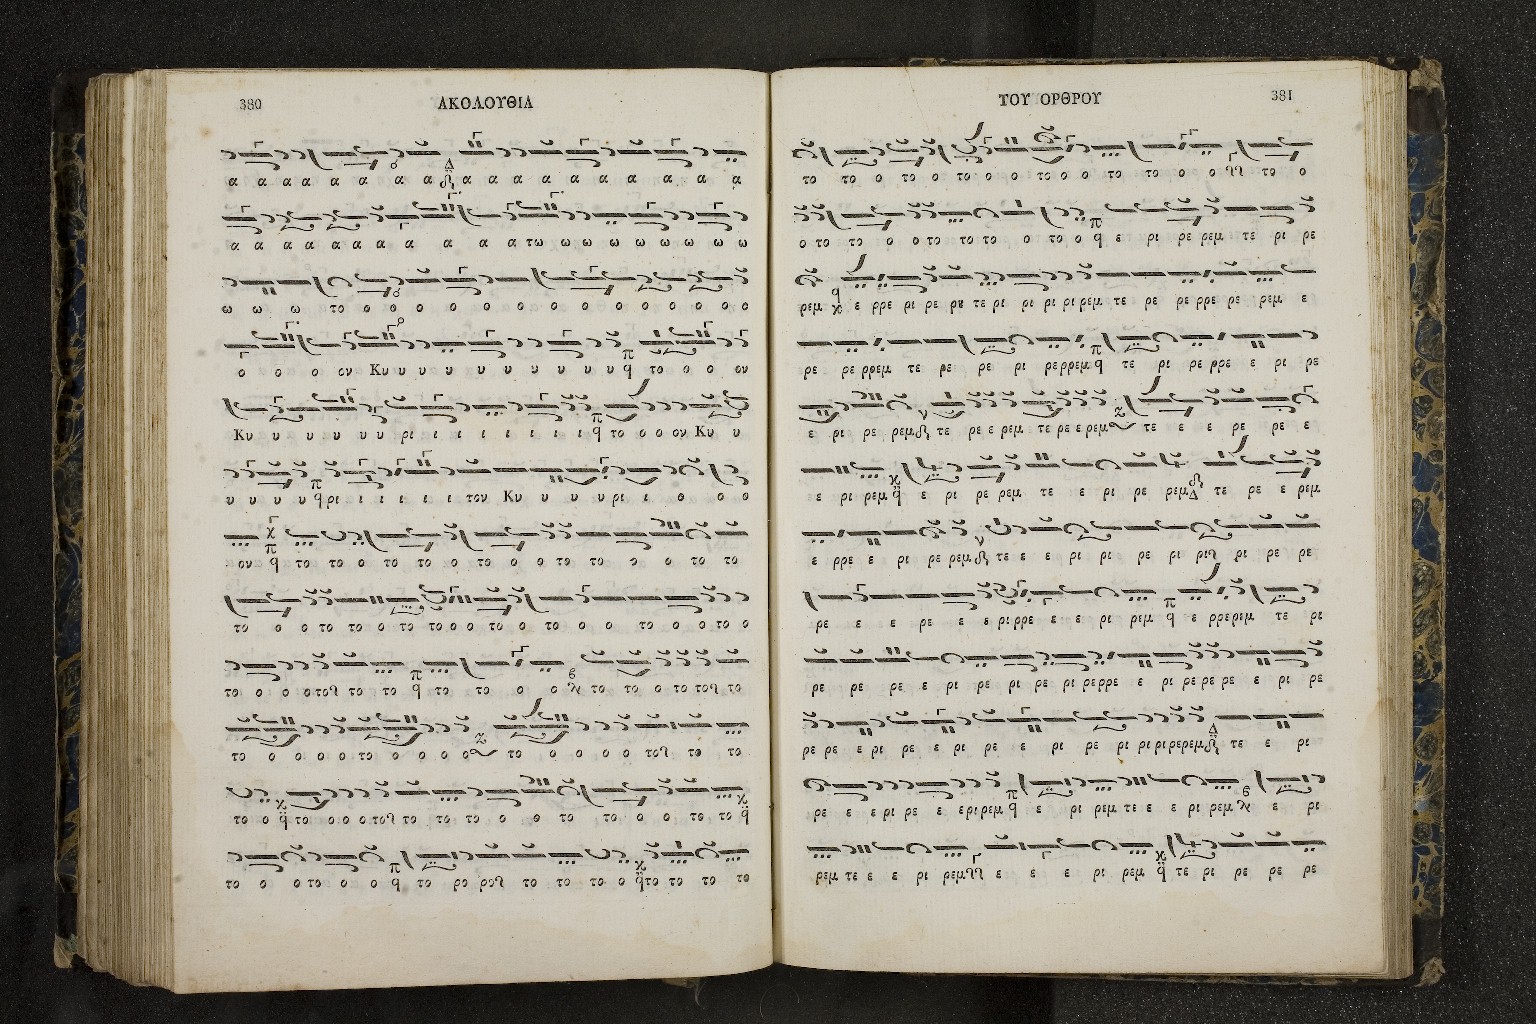 380 ΑΚΟΛΟΥΘΙΑ
α α α α α α α α α α α α α α α α α α α α
α α α α α α α α α α α τω ω ω ω ω ω ω ω ω
ω ω ω το ο ο ο ο ο ο ο ο ο ο ο ο ο ο
ο ο ο ου Κυ υ υ υ υ υ υ υ υ υ το ο ο ου
Κυ υ υ υ υ υ υ ρι ι ι ι ι ι ι ι το ο ο ου Κυ υ
υ υ υ υ ρι ι ι ι ι ι του Κυ υ υ υ ρι ι ο ο ο
ου το το ο το το ο το ο ο το το ο ο το το
το ο ο το το ο το το ο ο το ο το ο ο το ο ο το ο
το ο ο ο το το το το το ο ο το το ο το το το
το ο ο ο ο το ο ο ο ο το ο ο ο ο το το το
το ο το ο ο ο το το το το ο ο το το ο ο το το
το ο ο το ο ο το ρο ρο το το το ο το το το το
ΤΟΥ ΟΡΘΡΟΥ 381
το το ο το ο το ο ο το ο ο το το ο ο το ο
ο το το ο ο το το το ο το ο ε ρι ρε ρεμ τε ρι ρε
ρεμ ε ρρε ρι ρε ρε τε ρι ρι ρι ρι ρεμ τε ρε ρε ρρε ρε ρεμ ε
ρε ρε ρρεμ τε ρε ρε ρι ρερρεμ τε ρι ρε ρρε ε ρι ρε
ε ρι ρε ρεμ τε ρε ε ρεμ τε ρε ε ρεμ τε ε ε ρε ρε ε
ε ρι ρεμ ε ρι ρε ρεμ τε ε ρι ρε ρεμ τε ρε ε ρεμ
ε ρρε ε ρι ρε ρεμ τε ε ε ρι ρι ρε ρι ρι ρι ρε ρε
ρε ε ε ρε ε ε ρι ρρε ε ε ρι ρεμ ε ρρερεμ τε ρι
ρε ρε ρε ε ρι ρε ρι ρε ρι ρερρε ε ρι ρε ρε ρε ε ρι ρε
ρε ρε ε ρι ρε ε ρι ρε ε ρι ρε ρι ρι ρι ρερεμ τε ε ρι
ρε ε ε ρι ρε ε ε ρι ρεμ ε ε ρι ρεμ τε ε ε ρι ρεμ ε ρι
ρεμ τε ε ε ρι ρεμ ε ε ε ρι ρεμ τε ρι ρε ρε ρε